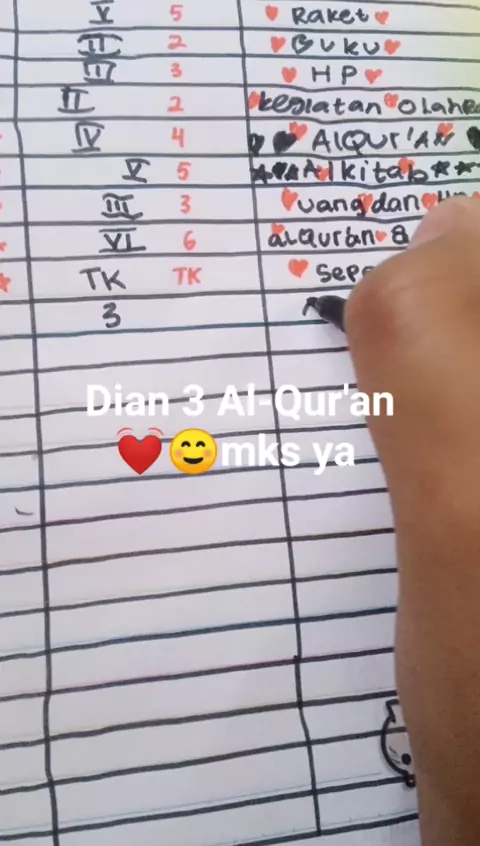 V 5 Raket
II 2 Buku
III 3 HP
II 2 kegiatan olahr
IV 4 ALQUr'AN
V 5 Alkitab
III 3 uang dan
VI 6 alquran &
TK TK sepe
3
Dian 3 Al-Qur'an
❤️😊mks ya